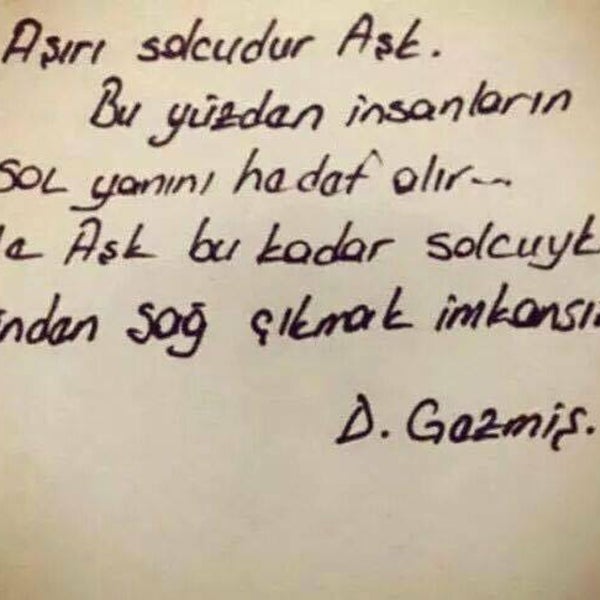 Aşırı solcudur Aşk.
Bu yüzden insanların
SOL yanını hedef alır...
Aşk bu kadar solcuyk
ndan sağ çıkmak imkansı
D. Gezmiş.